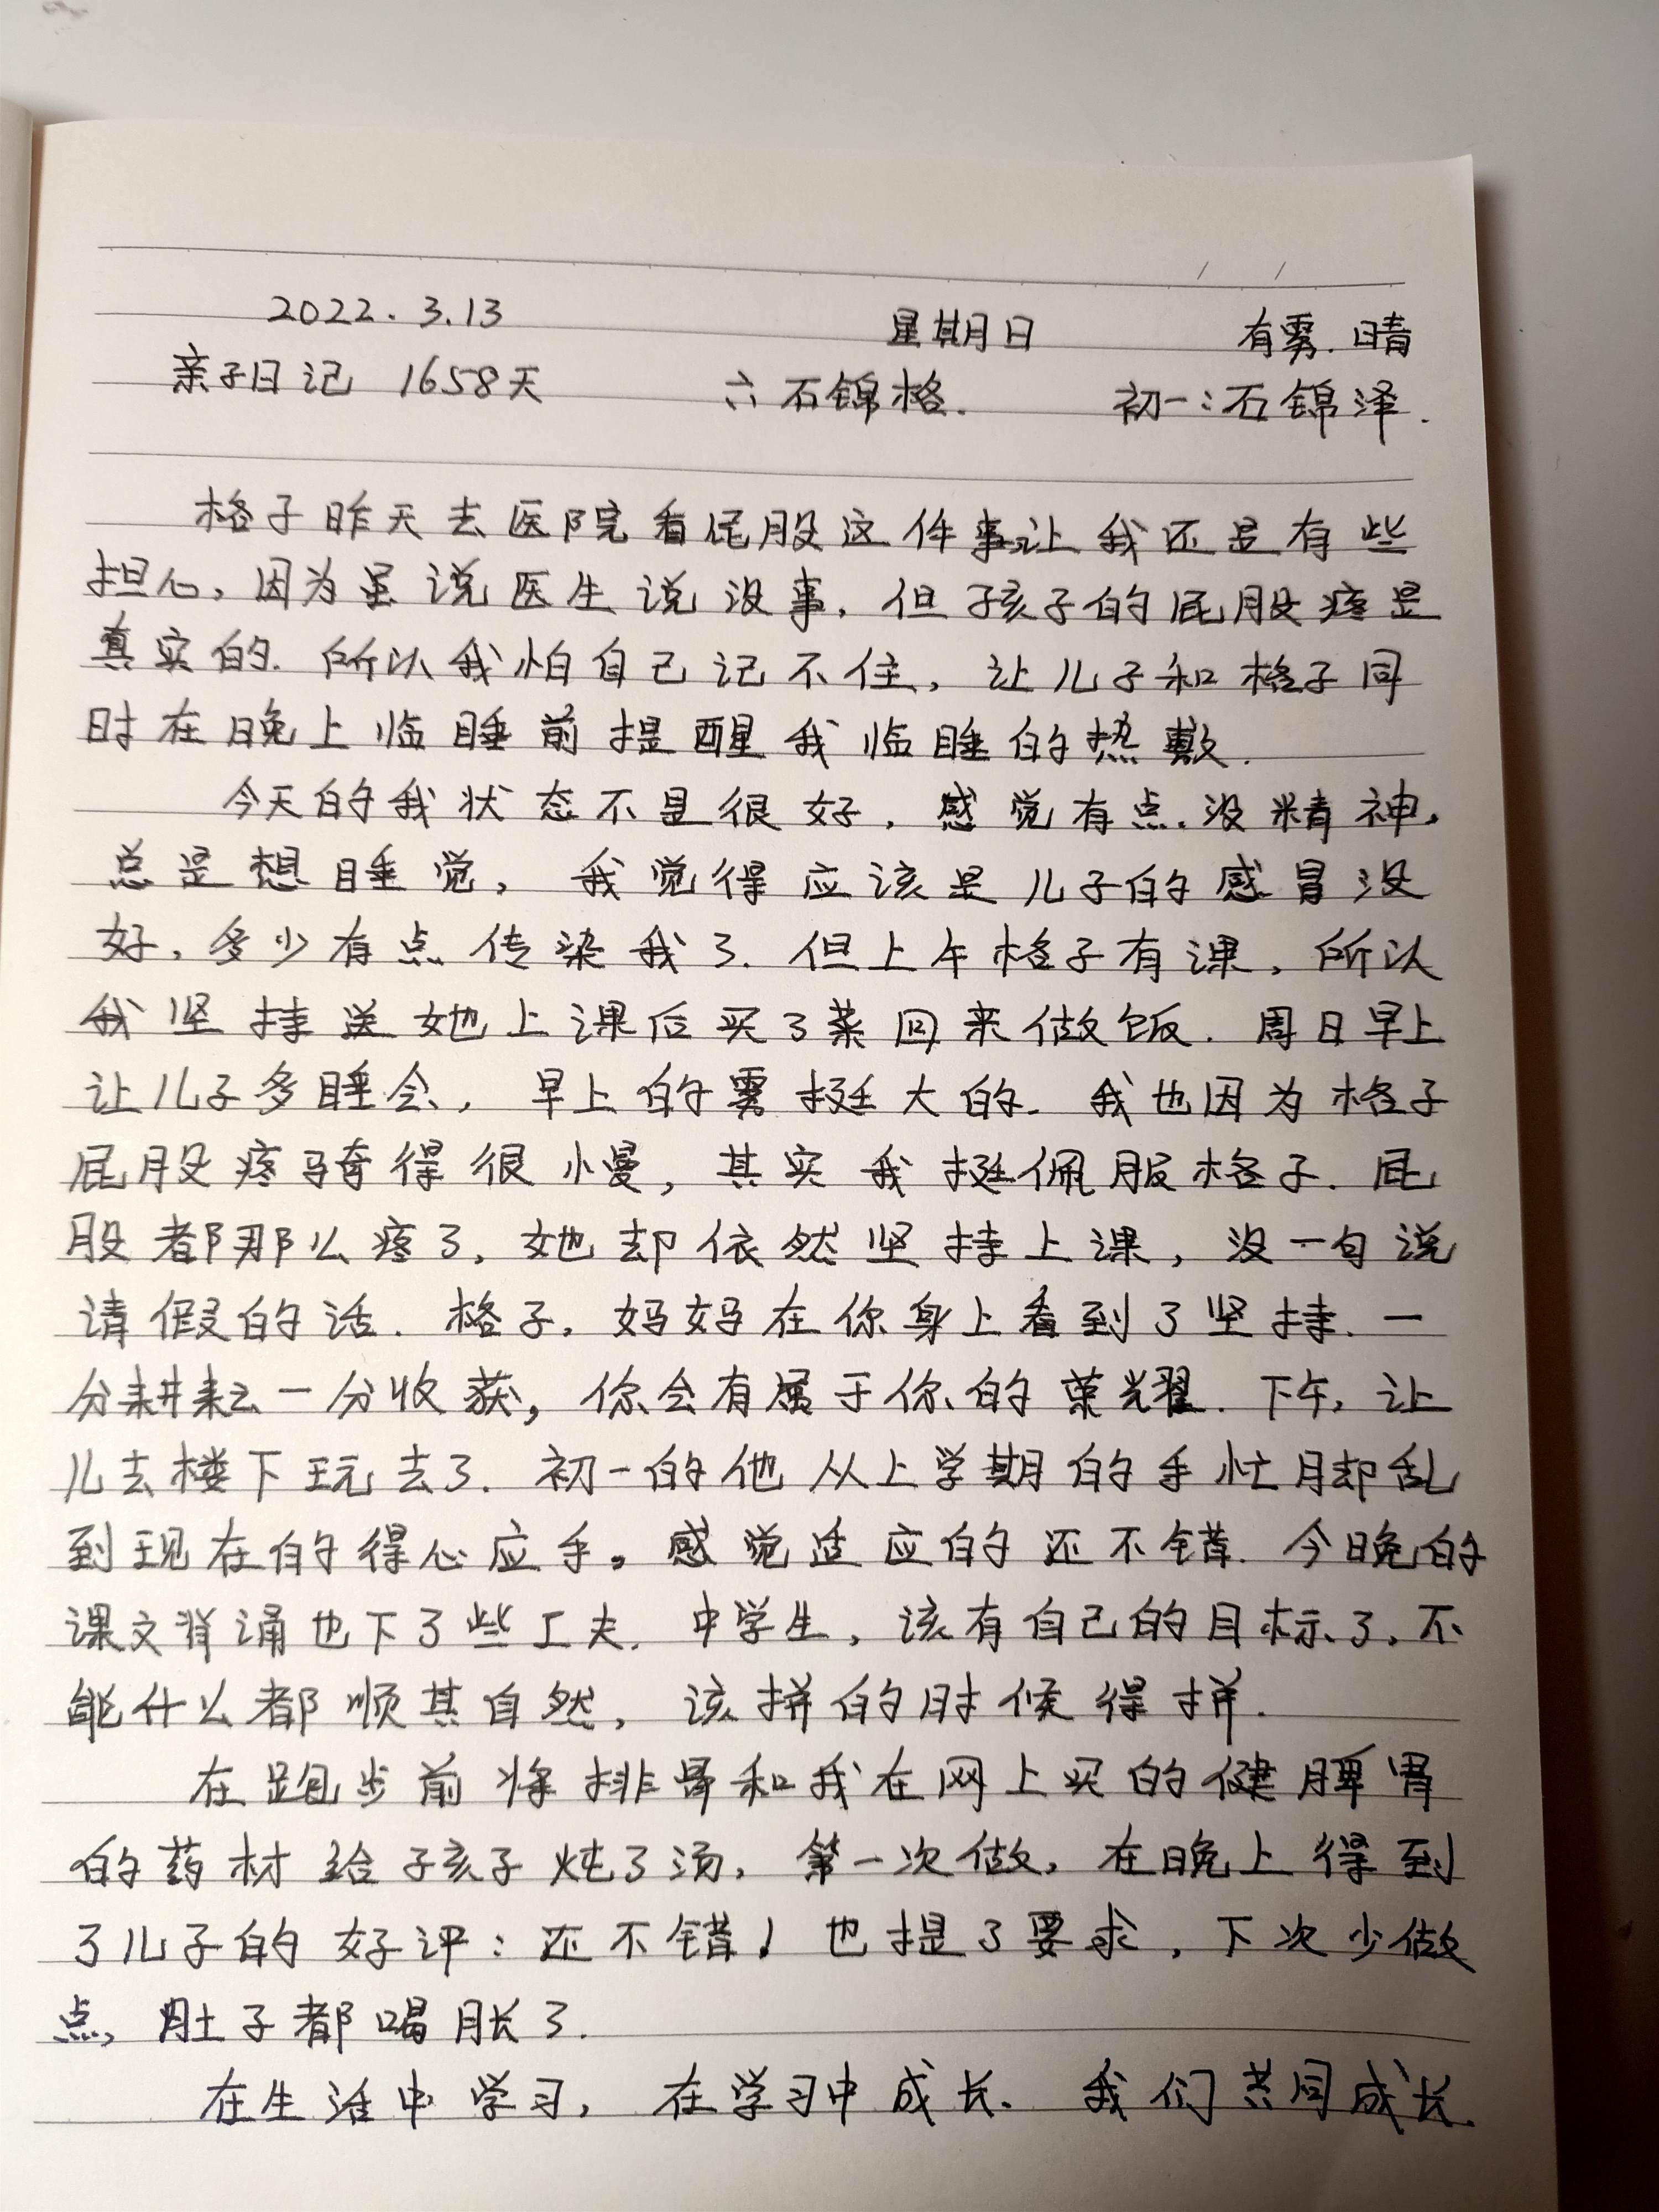 2022.3.13 星期日 有雾.晴
亲子日记 1658天 六石锦格. 初一:石锦泽.
格子昨天去医院看屁股这件事让我还是有些
担心,因为虽说医生说没事,但孩子的屁股疼是
真实的.所以我怕自己记不住,让儿子和格子同
时在晚上临睡前提醒我临睡的热敷.
今天的我状态不是很好,感觉有点没精神,
总是想睡觉,我觉得应该是儿子的感冒没
好,多少有点传染我了.但上午格子有课,所以
我坚持送她上课后买了菜回来做饭.周日早上
让儿子多睡会,早上的雾挺大的.我也因为格子
屁股疼骑得很慢,其实我挺佩服格子.屁
股都那么疼了,她却依然坚持上课,没一句说
请假的话.格子,妈妈在你身上看到了坚持.一
分耕耘一分收获,你会有属于你的荣耀.下午,让
儿去楼下玩去了.初一的他从上学期的手忙脚乱
到现在的得心应手。感觉适应的还不错.今晚的
课文背诵也下了些工夫.中学生,该有自己的目标了,不
能什么都顺其自然,该拼的时候得拼.
在跑步前将排骨和我在网上买的健脾胃
的药材给孩子炖了汤,第一次做,在晚上得到
了儿子的好评:还不错!也提了要求,下次少做
点,肚子都喝胀了.
在生活中学习,在学习中成长.我们共同成长.